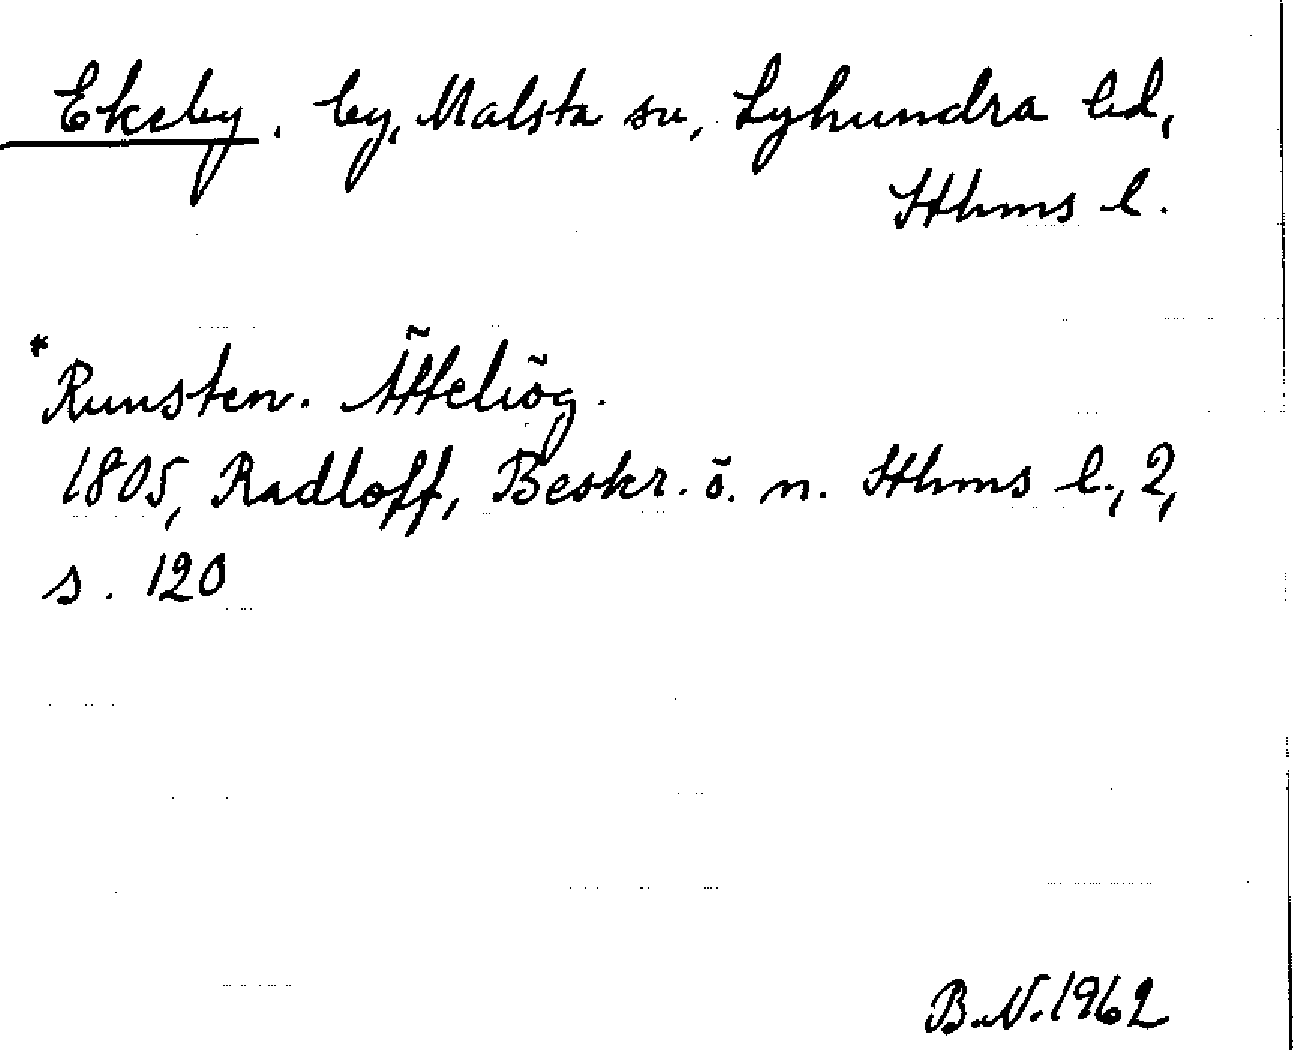 Ekeby, by, Malsta sn, Lyhundra hd,
Sthms l.
* Runsten. Ättehög.
1805, Radloff, Beskr. ö. n. Sthms l., 2,
s. 120
B.N. 1962